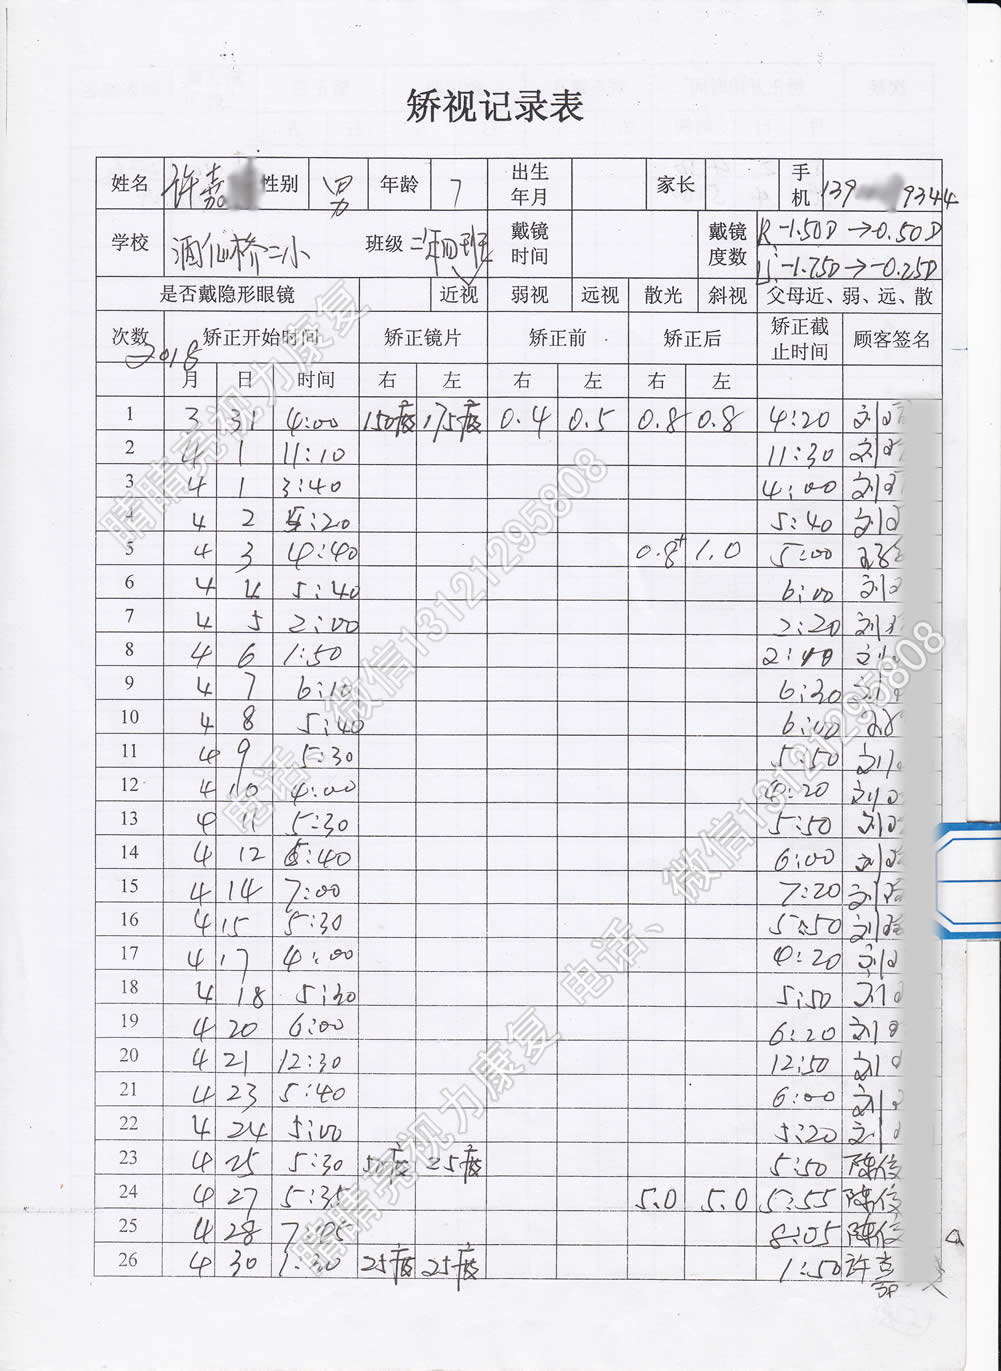 矫视记录表
姓名 许嘉 性别 男 年龄 7 出生年月 家长 手机 139 9344
学校 酒仙桥二小 班级 二年四班 戴镜时间 戴镜度数 R -1.50D→-0.50D
L: -1.75D→-0.25D
是否戴隐形眼镜 近视 弱视 远视 散光 斜视 父母近、弱、远、散
次数 矫正开始时间 矫正镜片 矫正前 矫正后 矫正截止时间 顾客签名
2018
月 日 时间 右 左 右 左 右 左
1 3 31 4:00 150度 175度 0.4 0.5 0.8 0.8 4:20 刘
2 4 1 11:10 11:30 刘
3 4 1 3:40 4:00 刘
4 4 2 5:20 5:40 刘
5 4 3 4:40 0.8+ 1.0 5:00
6 4 4 5:40 6:00 刘
7 4 5 2:00 2:20 刘
8 4 6 1:50 2:10 刘
9 4 7 6:10 6:30 刘
10 4 8 5:40 6:00
11 4 9 5:30 5:50 刘
12 4 10 4:00 4:20 刘
13 4 11 5:30 5:50 刘
14 4 12 5:40 6:00 刘
15 4 14 7:00 7:20 刘
16 4 15 5:30 5:50 刘
17 4 17 4:00 4:20 刘
18 4 18 5:30 5:50 刘
19 4 20 6:00 6:20 刘
20 4 21 12:30 12:50 刘
21 4 23 5:40 6:00 刘
22 4 24 5:00 5:20 刘
23 4 25 5:30 50度 25度 5:50 陈俊
24 4 27 5:35 5.0 5.0 5:55 陈俊
25 4 28 7:05 8:05 陈俊
26 4 30 1:30 25度 25度 1:50 许嘉
睛睛亮视力康复
电话、微信13121295808
睛睛亮视力康复
电话、微信13121295808